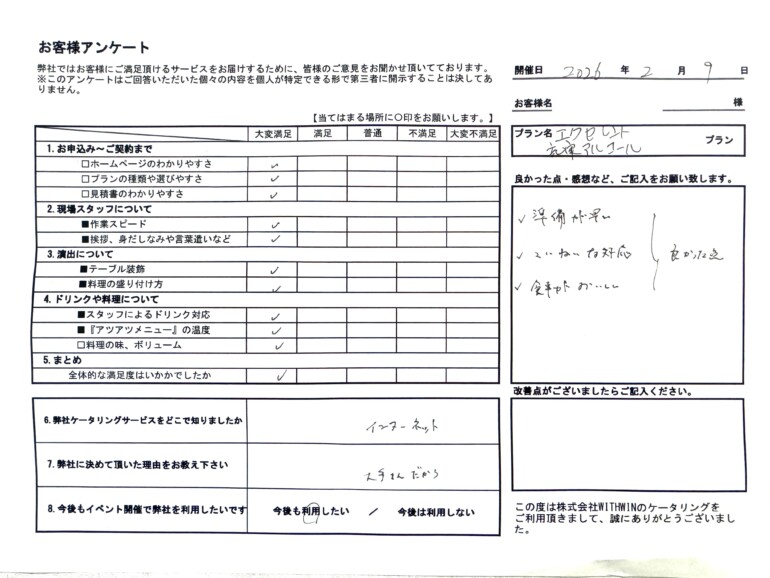 お客様アンケート
弊社ではお客様にご満足頂けるサービスをお届けするために、皆様のご意見をお聞かせ頂いております。
※このアンケートはご回答いただいた個々の内容を個人が特定できる形で第三者に開示することは決してあ
りません。
開催日 2026 年 2 月 9 日
お客様名 様
【当てはまる場所に〇印をお願いします。】
プラン名 エクセレント
アルコール プラン
大変満足 満足 普通 不満足 大変不満足
1.お申込み～ご契約まで
□ホームページのわかりやすさ ✓
□プランの種類や選びやすさ ✓
□見積書のわかりやすさ ✓
2.現場スタッフについて
■作業スピード ✓
■挨拶、身だしなみや言葉遣いなど ✓
3.演出について
■テーブル装飾 ✓
■料理の盛り付け方 ✓
4.ドリンクや料理について
■スタッフによるドリンク対応 ✓
■『アツアツメニュー』の温度 ✓
□料理の味、ボリューム ✓
5.まとめ
全体的な満足度はいかがでしたか ✓
良かった点・感想など、ご記入をお願い致します。
✓ 準備が早い
✓ ていねいな対応 良かった点
✓ 食事がおいしい
改善点がございましたらご記入ください。
6.弊社ケータリングサービスをどこで知りましたか インターネット
7.弊社に決めて頂いた理由をお教え下さい 大手さんだから
8.今後もイベント開催で弊社を利用したいです 今後も利用したい / 今後は利用しない
この度は株式会社WITHWINのケータリングを
ご利用頂きまして、誠にありがとうございまし
た。